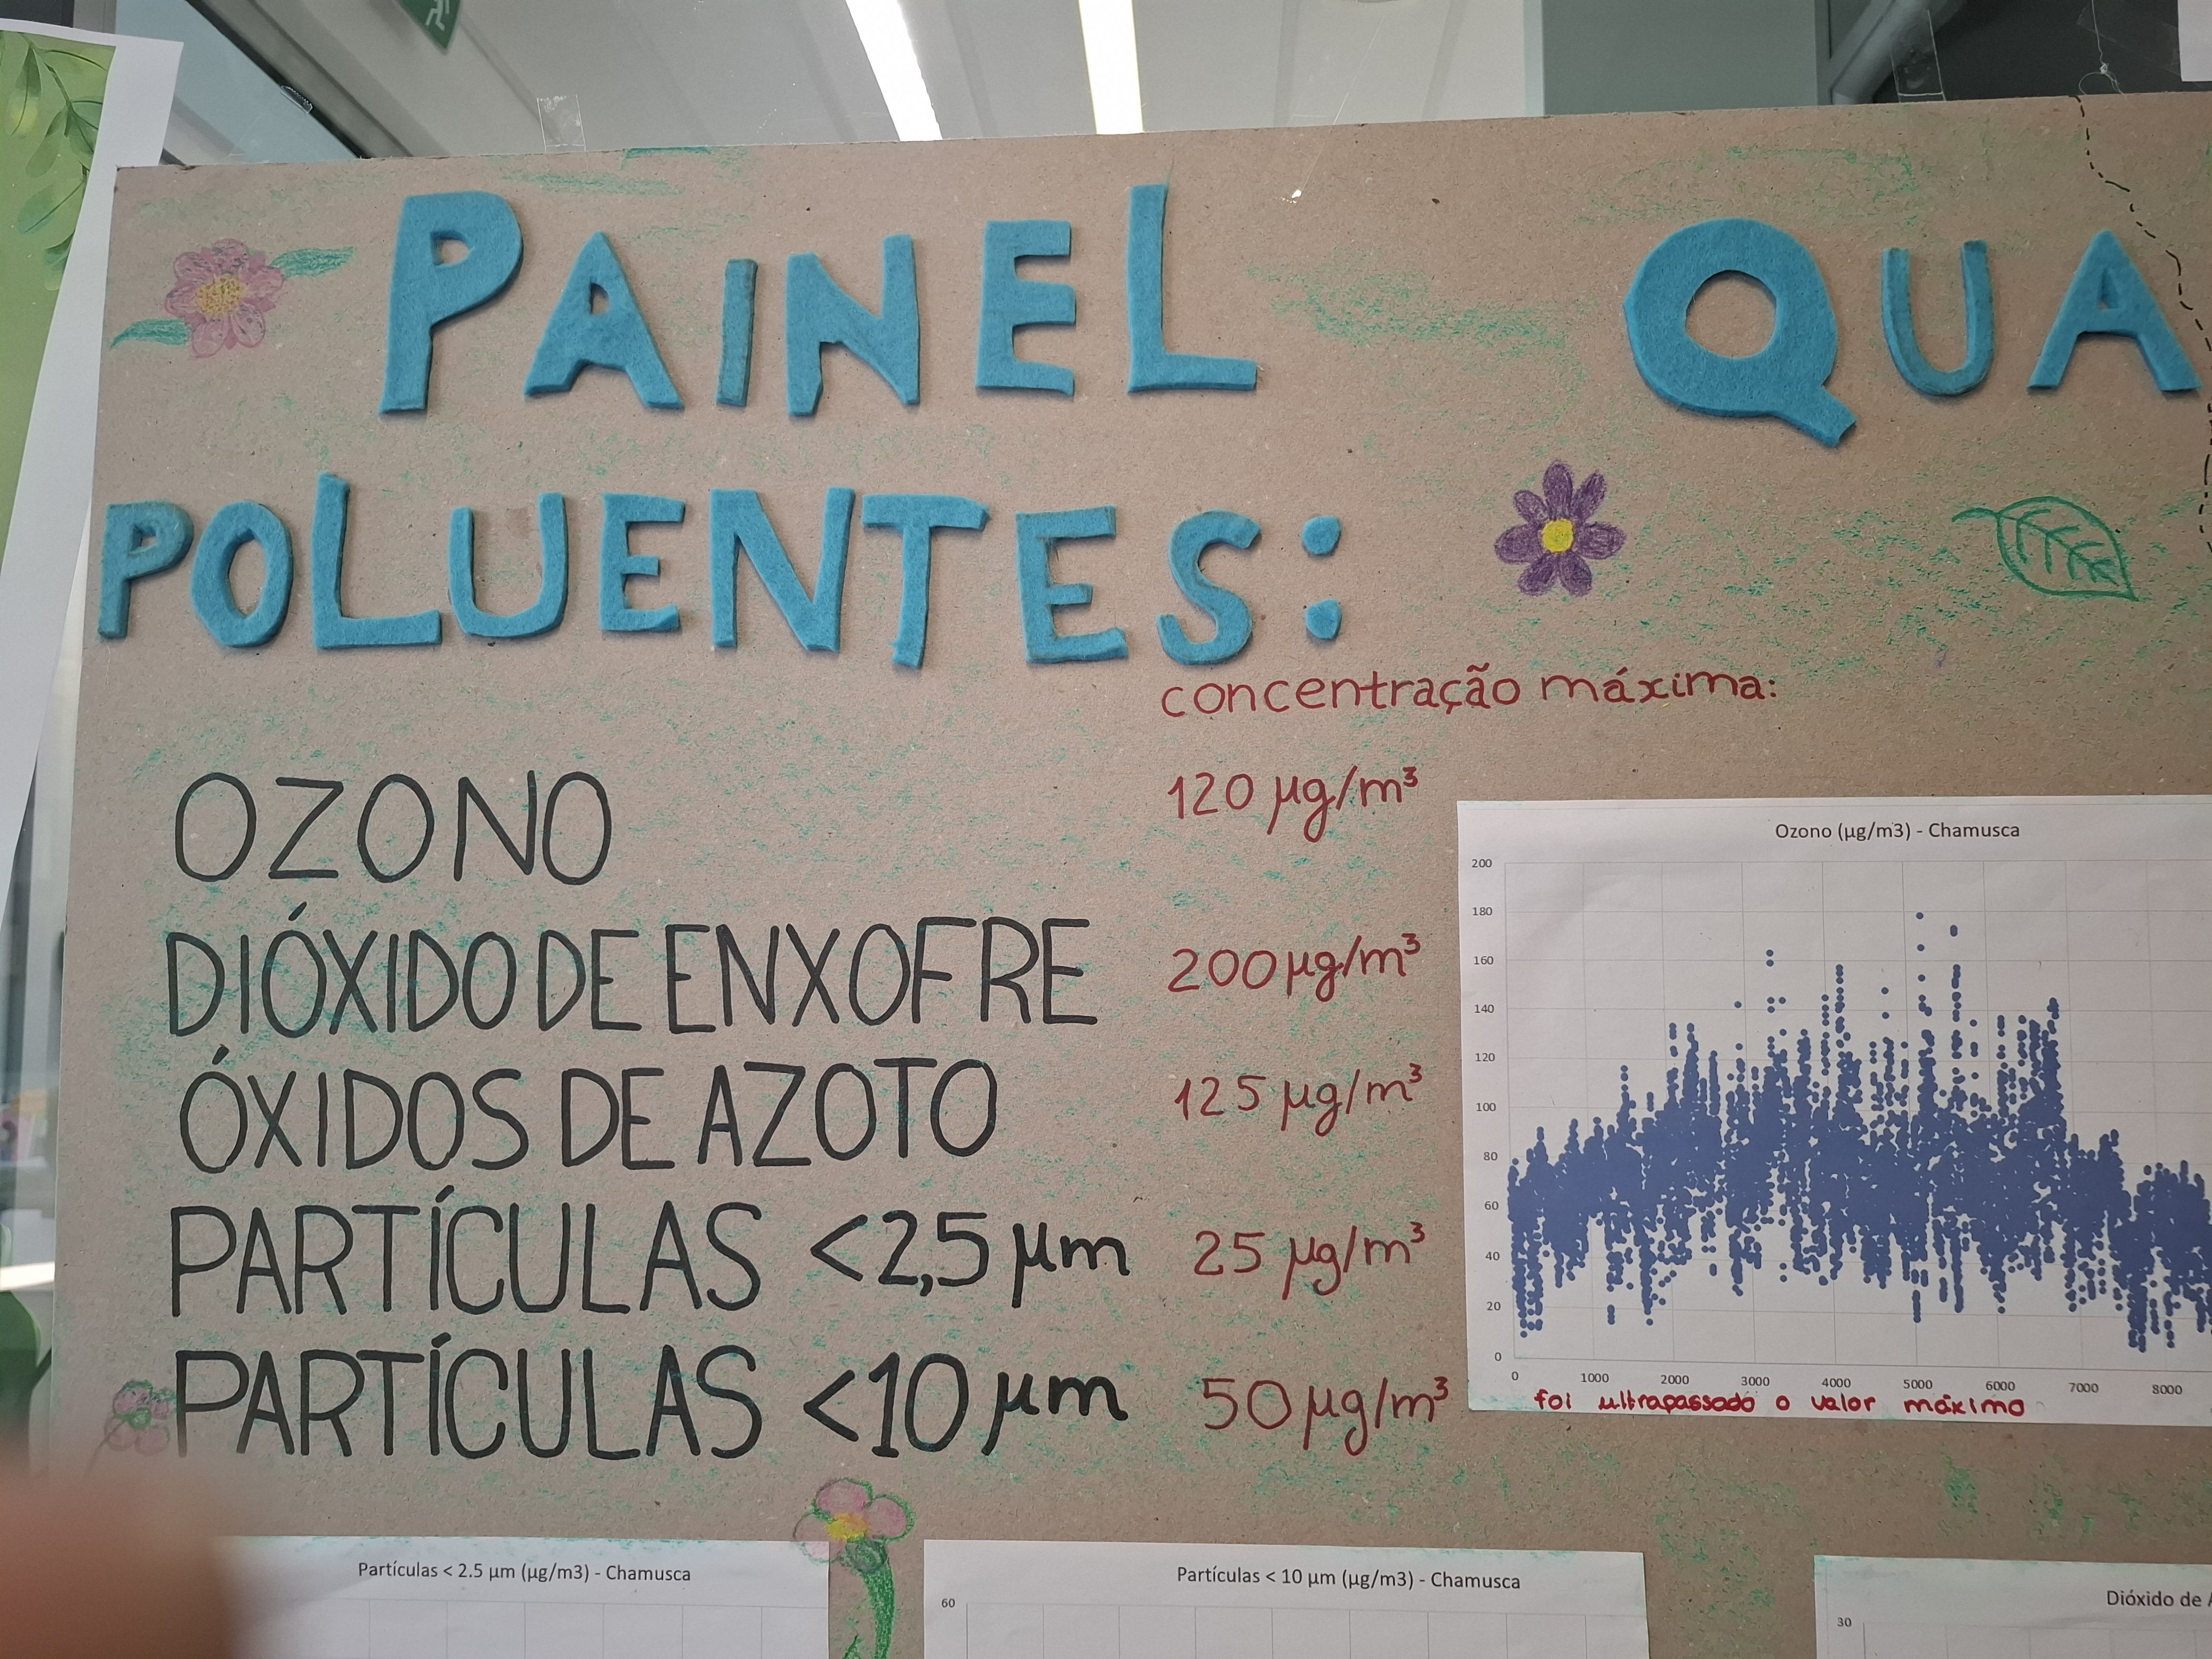 PAINEL QUA
POLUENTES:
concentração máxima:
OZONO 120 µg/m³
DIÓXIDO DE ENXOFRE 200 µg/m³
ÓXIDOS DE AZOTO 125 µg/m³
PARTÍCULAS <2,5 µm 25 µg/m³
PARTÍCULAS <10 µm 50 µg/m³
Ozono (µg/m3) - Chamusca
200
180
160
140
120
100
80
60
40
20
0
0 1000 2000 3000 4000 5000 6000 7000 8000
foi ultrapassado o valor máximo
Partículas < 2.5 µm (µg/m3) - Chamusca
Partículas < 10 µm (µg/m3) - Chamusca
60
Dióxido de
30